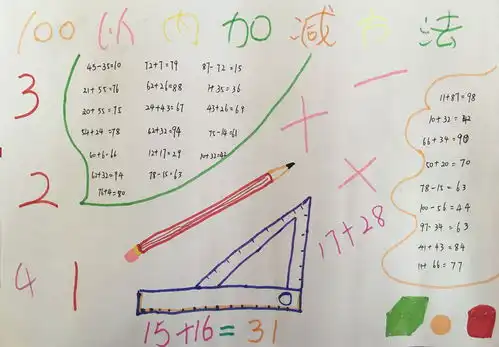 100以内加减方法
45-35=10 72+7=79 87-72=15
21+55=76 62+26=88 1+35=36
20+55=75 24+43=67 43+26=69
54+24=78 62+32=94 75-14=61
60+6=66 12+17=29 10+32=42
62+32=94 78-15=63
76+4=80
3
2
4 1
+ -
×
17+28
15+16=31
11+87=98
10+32=42
66+34=90
50+20=70
78-15=63
100-56=44
97-34=63
41+43=84
11+66=77